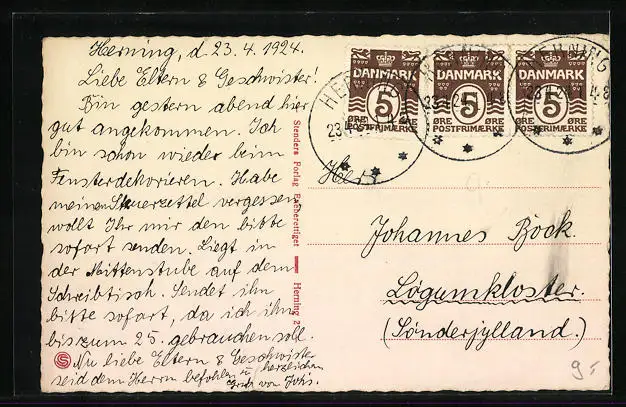 Herning, d 23. 4. 1924.
Liebe Eltern & Geschwister!
Bin gestern abend hier
gut angekommen. Ich
bin schon wieder beim
Fensterdekorieren. Habe
meinen Steuerzettel vergessen
wollt Ihr mir den bitte
sofort senden. Liegt in
der Mittenstube auf dem
Schreibtisch. Sendet ihn
bitte sofort, da ich ihn
bis zum 25. gebrauchen soll.
Nu liebe Eltern & Geschwister
seid dem Herrn befohlen u. herzlichen
Gruß von Joh's.
Stenders Forlag Eneberettiget
Herning 2
DANMARK
5
ØRE ØRE
POSTFRIMÆRKE
DANMARK
5
ØRE ØRE
POSTFRIMÆRKE
DANMARK
5
ØRE ØRE
POSTFRIMÆRKE
HERNING
Herr
Johannes Bock.
Løgumkloster
(Sønderjylland.)
S